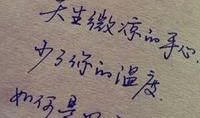 天生微凉的手心
少了你的温度.
如何是